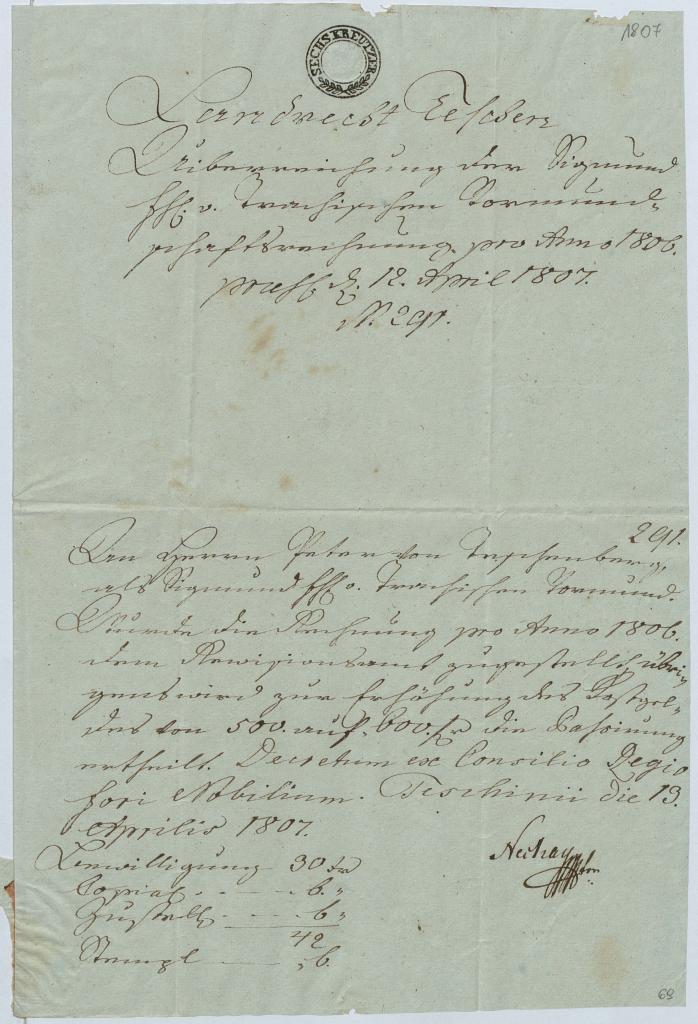 1807
SECHS KREUTZER
Landrecht Teschen
Uiberreichung der Sigmund
frh. v. Trachischen Vormund-
schaftsrechnung pro Anno 1806.
12. April 1807.
N. 291.
291.
An Herrn Peter von Teschenberg,
als Sigmund frh. v. Trachischen Vormund.
Wurde die Rechnung pro Anno 1806.
dem Revisionsamt zugestellt, übri-
gens wird zur Erhöhung des Kostgel-
des von 500. auf 600. fr die Passirung
ertheilt. Decretum ex Consilio Regio
fori Nobilium. Teschinii die 13.
Aprilis 1807.
Bewilligung 30 xr
Copiat - - - 6. "
Zustell - - - 6 "
42
Stempl - - - " 6.
69